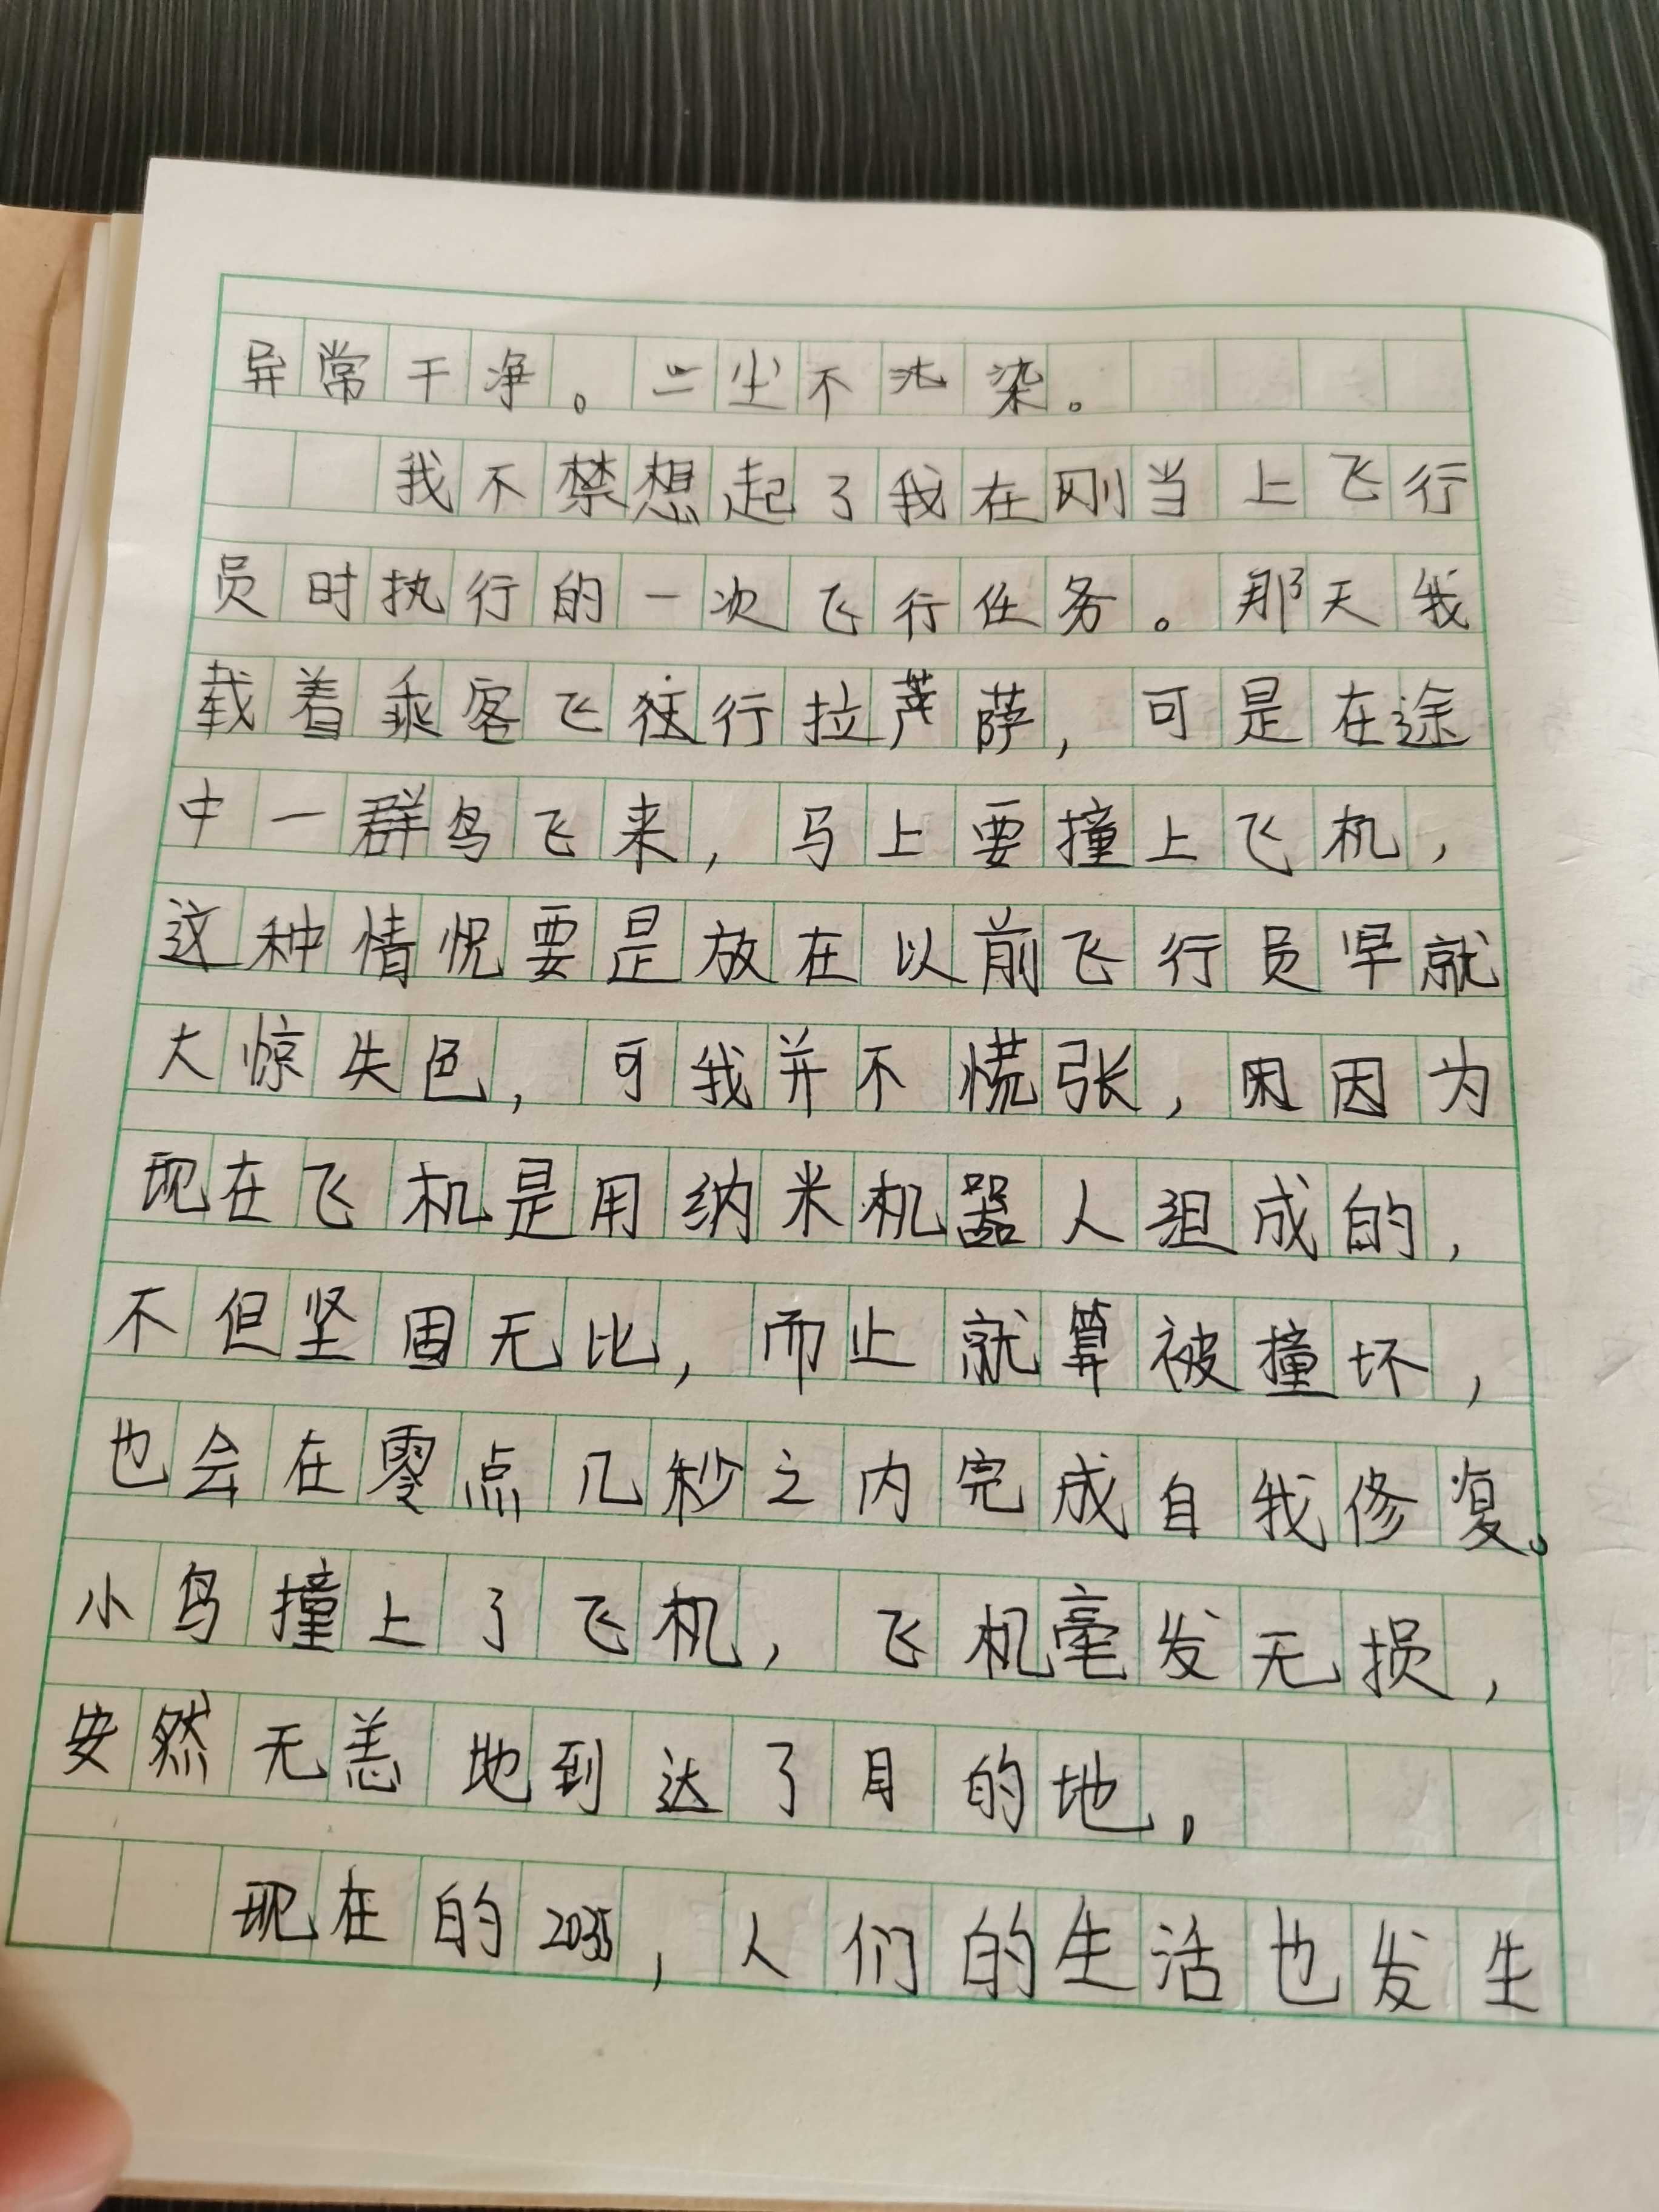 异常干净。一尘不染。
我不禁想起了我在刚当上飞行
员时执行的一次飞行任务。那天我
载着乘客飞往行拉萨，可是在途
中一群鸟飞来，马上要撞上飞机，
这种情况要是放在以前飞行员早就
大惊失色，可我并不慌张，因为
现在飞机是用纳米机器人组成的，
不但坚固无比，而止就算被撞坏，
也会在零点几秒之内完成自我修复。
小鸟撞上了飞机，飞机毫发无损，
安然无恙地到达了目的地。
现在的2035，人们的生活也发生